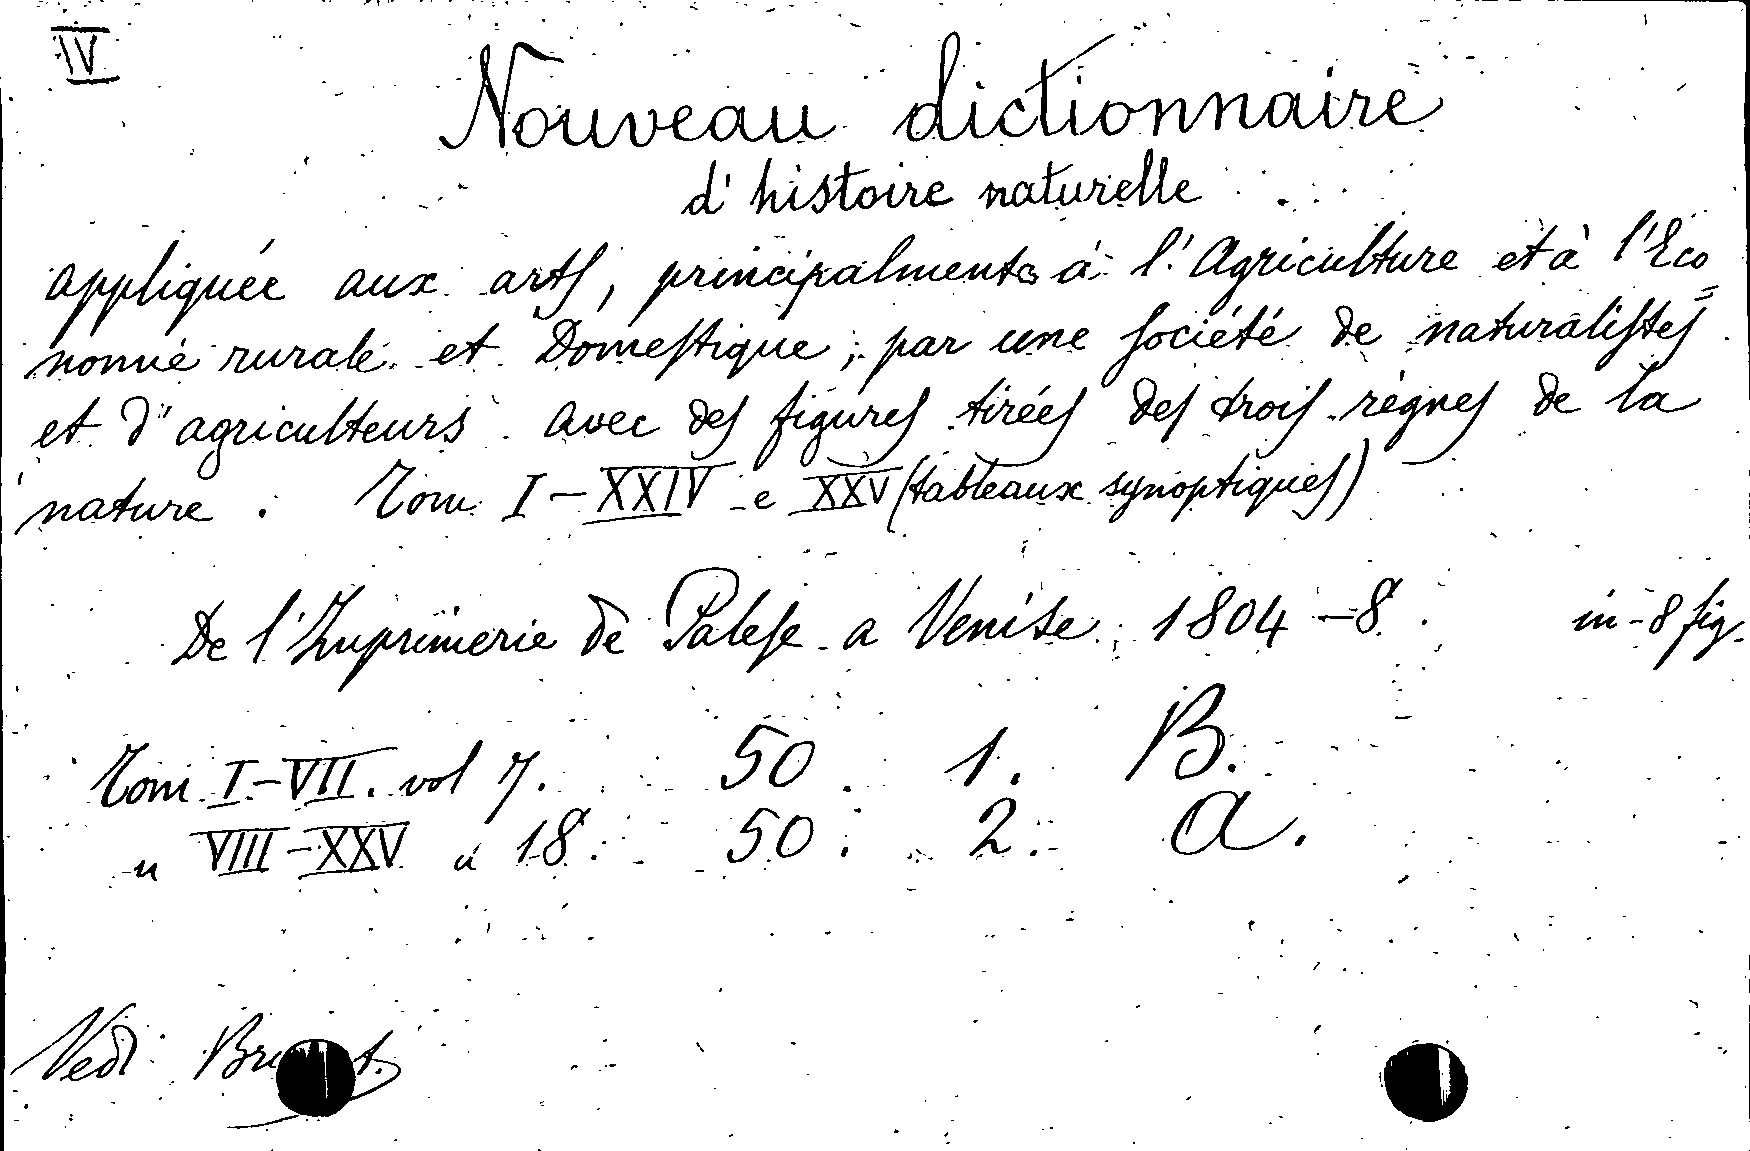 IV
Nouveau dictionnaire
d'histoire naturelle
appliquée aux arts, principalment à l'Agriculture et à l'Eco=
nomie rurale et Domestique; par une société de naturalistes
et d'agriculteurs avec des figures tirées des trois règnes de la
nature. Tom I-XXIV e XXV (tableaux synoptiques)
De l'Imprimerie de Palese a Venise 1804-8. in-8 fig.
Tom I-VII. vol 7. 50. 1. B.
" VIII-XXV " 18. 50. 2. A.
Vedi